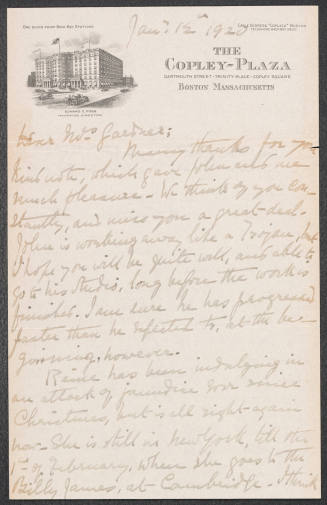 ONE BLOCK FROM BACK BAY STATIONS
CABLE ADDRESS "COPLEZA" BOSTON
Jan. 12th 1920
THE
COPLEY-PLAZA
DARTMOUTH STREET · TRINITY PLACE · COPLEY SQUARE
BOSTON MASSACHUSETTS
EDWARD C. FOGG
MANAGING DIRECTOR
Dear Mrs Gardner;
Many thanks for your
kind note, which gave John and me
much pleasure - We think of you con-
stantly, and miss you a great deal.
John is working away like a Trojan, but
I hope you will be quite well, and able to
go to his studio, long before the work is
finished. I am sure he has progressed
faster than he expected to, at the be-
ginning, however.
Reine has been indulging in
an attack of jaundice ever since
Christmas, but is all right again
now - She is still in New York, till the
1st of February, when she goes to the
Billy James, at Cambridge. I think